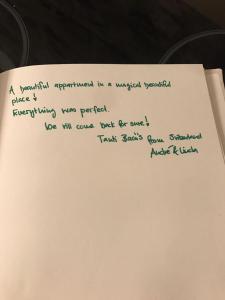 A beautiful appartment in a magical beautiful
place!
Everything was perfect.
We will come back for sure!
Tanti Bacii's from Switzerland
André &